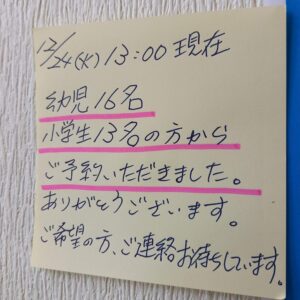 12/24(火)13:00現在
幼児16名
小学生13名の方から
ご予約いただきました。
ありがとうございます。
ご希望の方、ご連絡お待ちしています。